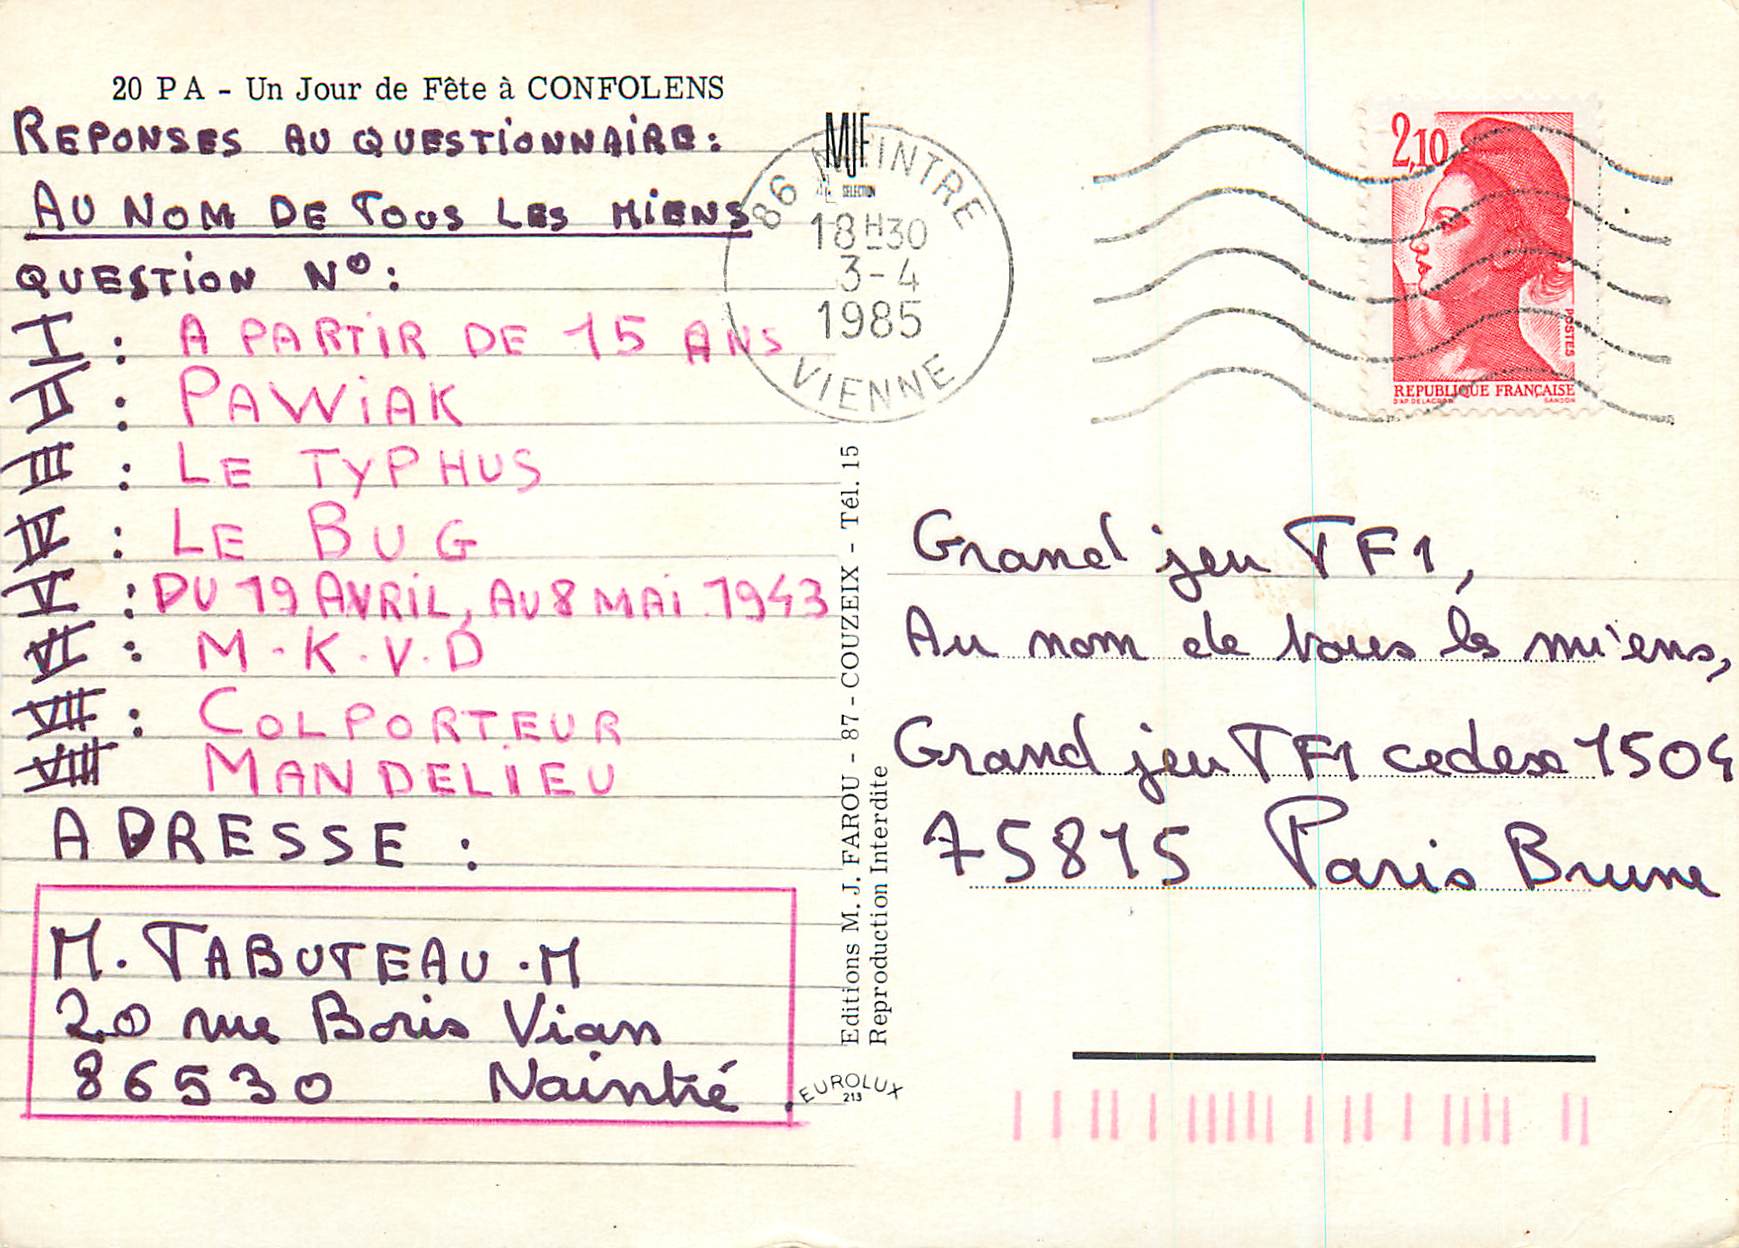 20 P A - Un Jour de Fête à CONFOLENS
REPONSES AU QUESTIONNAIRE :
AU NOM DE TOUS LES MIENS
QUESTION N° :
I : A PARTIR DE 15 ANS
II : PAWIAK
III : LE TYPHUS
IV : LE BUG
V : DU 19 AVRIL, AU 8 MAI 1943
VI : M.K.V.D
VII : COLPORTEUR
VIII MANDELIEU
ADRESSE :
M. TABUTEAU . M
20 rue Boris Vian
86530 Naintré.
MJF
SELECTION
86 NAINTRE
18H30
3-4
1985
VIENNE
Editions M. J. FAROU - 87 - COUZEIX - Tél. 15
Reproduction Interdite
EUROLUX
213
2,10
POSTES
REPUBLIQUE FRANÇAISE
D'AP. DELACROIX GANDON
Grand jeu TF1,
Au nom de tous les miens,
Grand jeu TF1 cedex 1504
75815 Paris Brune